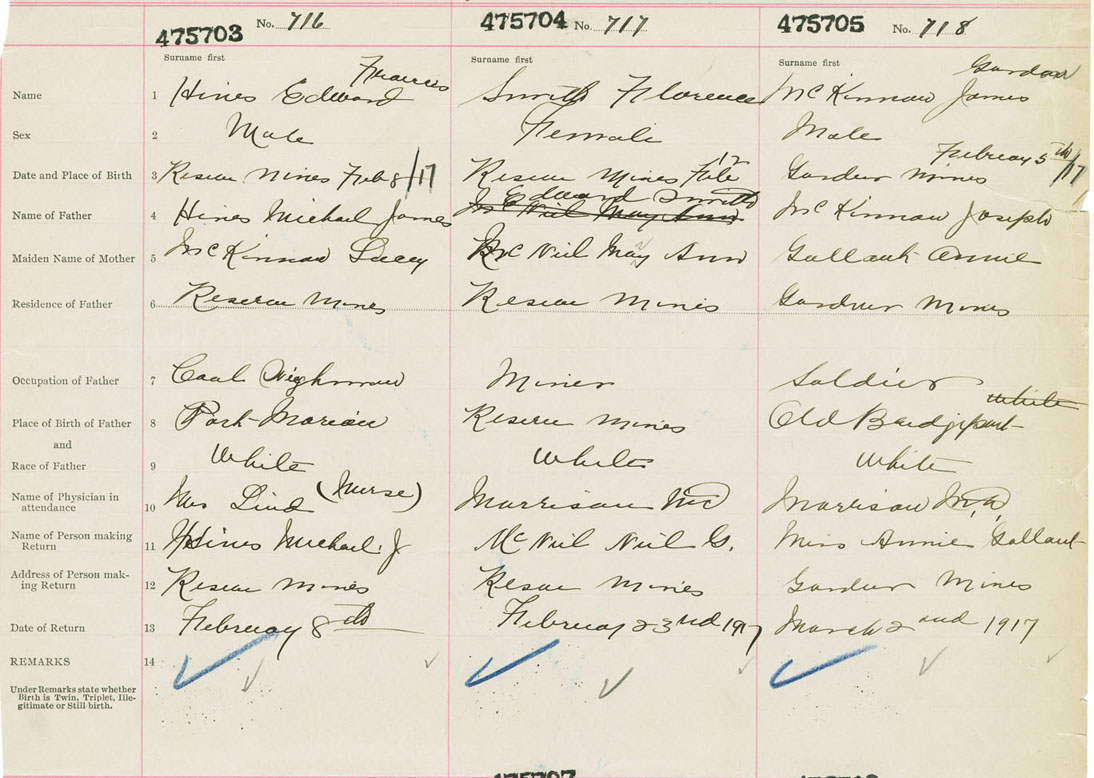 475703 No. 716 475704 No. 717 475705 No. 718
Surname first Surname first Surname first
Frances Gordon
Name 1 Hines Edward Smith Florence McKinnon James
Sex 2 Male Female Male
February 5th/17
Date and Place of Birth 3 Reserve Mines Feb 8/17 Reserve Mines Feb 12 Gardner Mines
Edward Smith
Name of Father 4 Hines Michael James McNeil May Ann McKinnon Joseph
Maiden Name of Mother 5 McKinnon Lucy McNeil May Ann Gallant Annie
Residence of Father 6 Reserve Mines Reserve Mines Gardner Mines
Occupation of Father 7 Coal Weighman Miner Soldier
White
Place of Birth of Father 8 Port Morien Reserve Mines Old Bridgeport
and
Race of Father 9 White White White
Name of Physician in
attendance 10 Mrs Lind (Nurse) Morrison MD Morrison M.D.
Name of Person making
Return 11 Hines Michael J McNeil Neil G. Miss Annie Gallant
Address of Person mak-
ing Return 12 Reserve Mines Reserve Mines Gardner Mines
Date of Return 13 February 8th February 23nd 1917 March 2nd 1917
REMARKS 14
Under Remarks state whether
Birth is Twin, Triplet, Ille-
gitimate or Still-birth.